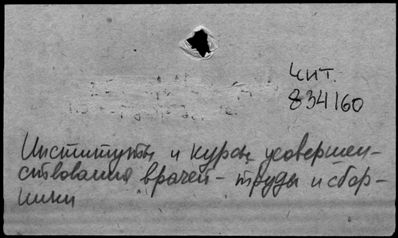 Чит.
834160
Институты и курсы усовершен-
ствования врачей - труды и сбор-
ники